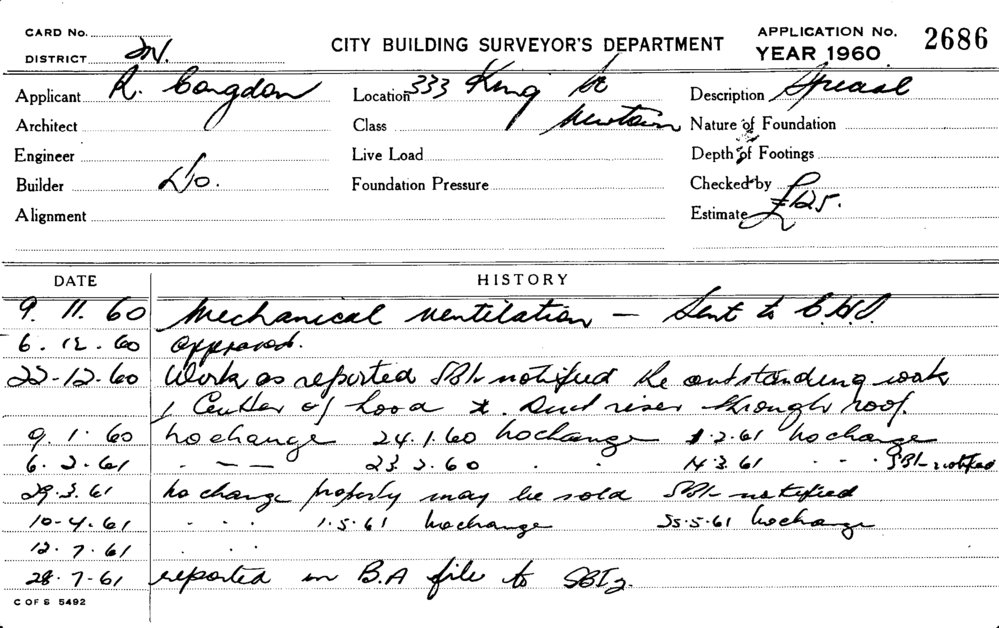 CARD No.
CITY BUILDING SURVEYOR'S DEPARTMENT
APPLICATION No. 2686
DISTRICT
YEAR 1960
Applicant R. Congdon
Location 333 King St
Description Special
Architect
Class Newtown
Nature of Foundation
Engineer
Live Load
Depth of Footings
Builder Do.
Foundation Pressure
Checked by
Alignment
Estimate £125.
DATE HISTORY
9. 11. 60 Mechanical ventilation — Sent to C.H.O.
6. 12. 60 approved.
22-12-60 Work as reported SBI notified re outstanding work
of hood & Duct riser through roof.
9. 1. 60 No change 24. 1. 60 No change 1. 2. 61 No change
6. 2. 61 . – – 23. 2. 60 . . 14. 3. 61 . - - SBI notified
29. 3. 61 No change property may be sold SBI notified
10-4. 61 . . . 1. 5. 61 No change 5-61 No change
12. 7. 61 . . .
28. 7-61 reported in B.A file to SBI2.
C OF S 5492